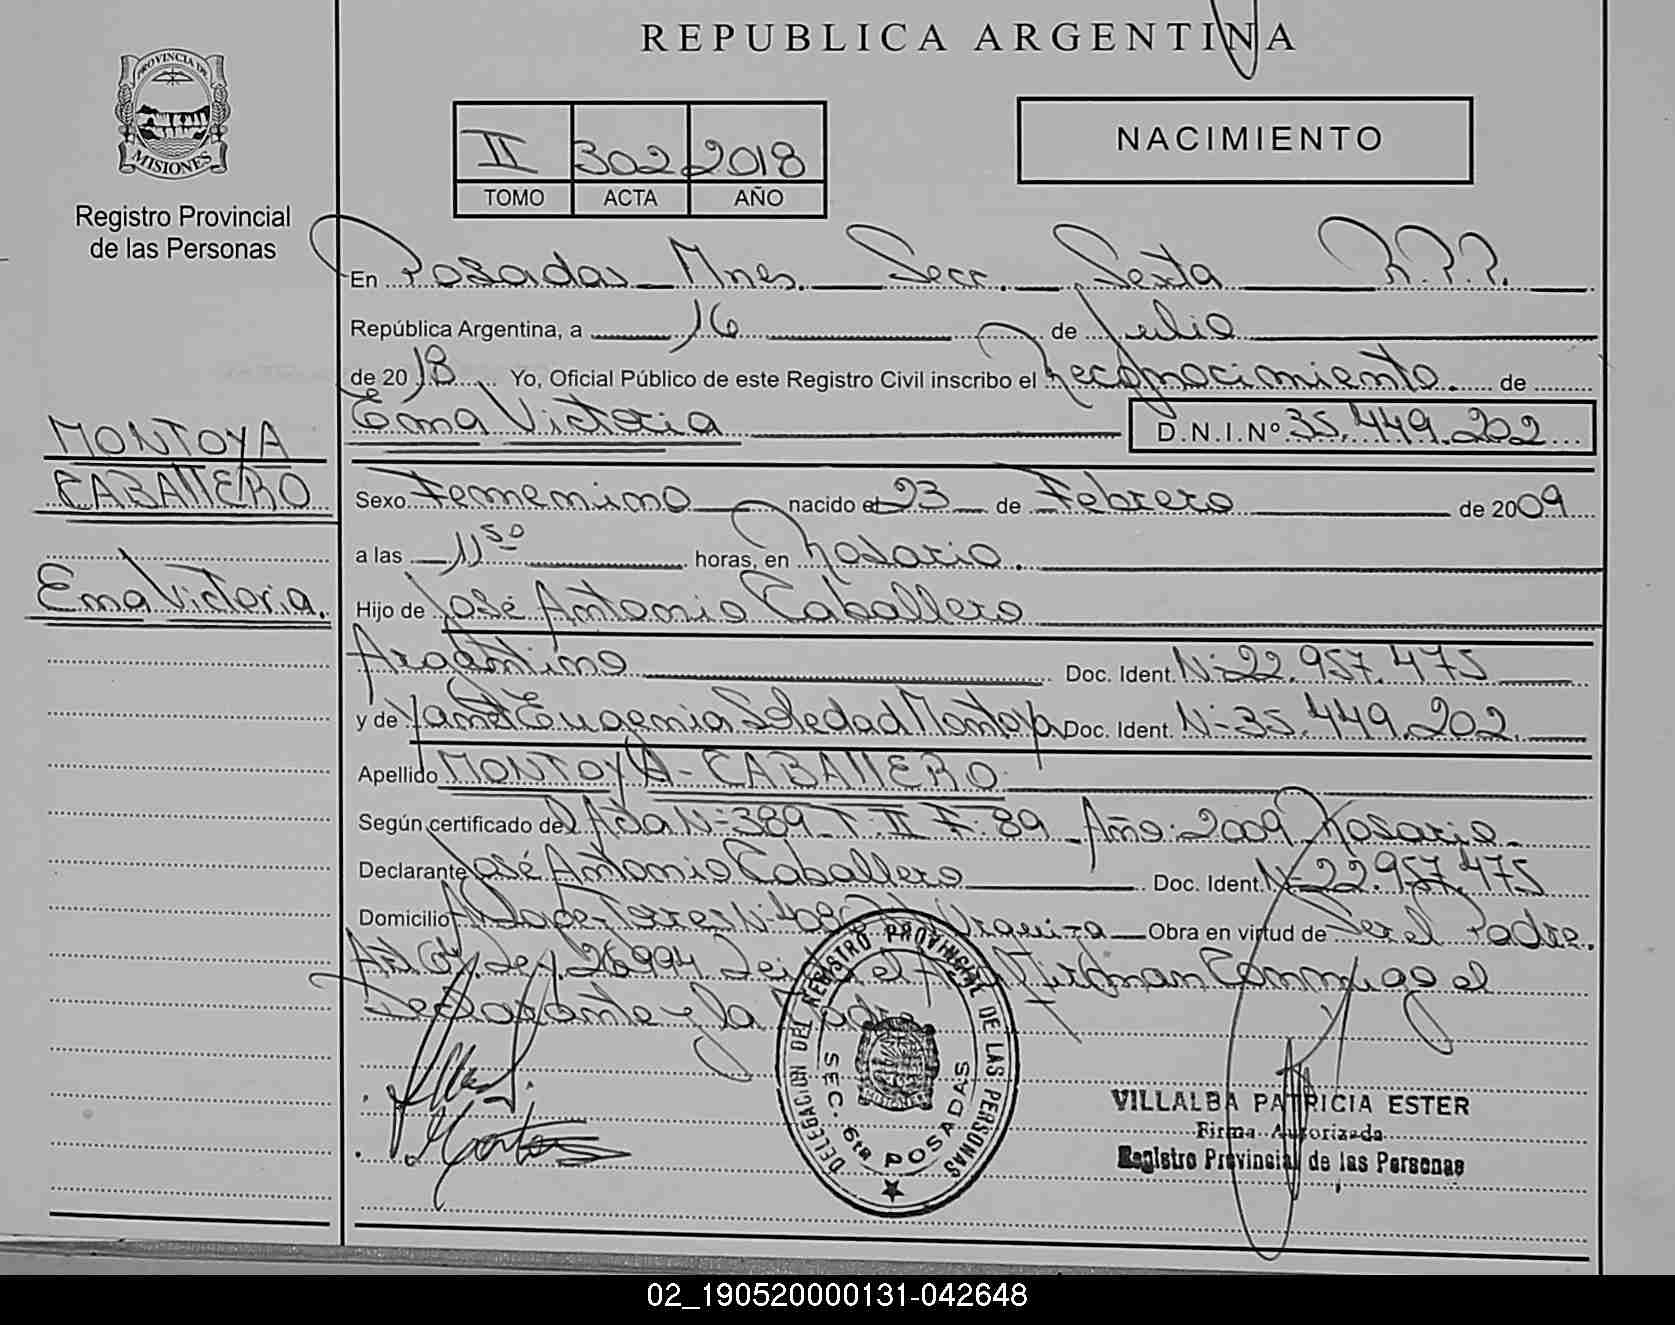 REPUBLICA ARGENTINA
PROVINCIA DE
MISIONES
Registro Provincial
de las Personas
II 302 2018
TOMO ACTA AÑO
NACIMIENTO
En Posadas Mnes. Secc. Sexta R.P.P.
República Argentina, a 16 de Julio
de 2018 Yo, Oficial Público de este Registro Civil inscribo el Reconocimiento de
Ema Victoria D.N.I.Nº 35.449.202
MONTOYA
CABALLERO
Ema Victoria.
Sexo Femenino nacido el 23 de Febrero de 2009
a las 11 50 horas, en Rosario.
Hijo de José Antonio Caballero
Argentino Doc. Ident. Nº 22.957.475
y de Eugenia Soledad Montoya Doc. Ident. Nº 35.449.202
Apellido MONTOYA - CABALLERO
Según certificado del Acta Nº 389 T. II F. 89 Año: 2009 Rosario
Declarante José Antonio Caballero Doc. Ident. Nº 22.957.475
Domicilio Torres Nº Urquiza Obra en virtud de Ser el Padre.
26994 el Firman Conmigo el
Declarante y la Madre
DELEGACION DEL REGISTRO PROVINCIAL DE LAS PERSONAS
SEC. 6ta POSADAS
VILLALBA PATRICIA ESTER
Firma Autorizada
Registro Provincial de las Personas
02_190520000131-042648